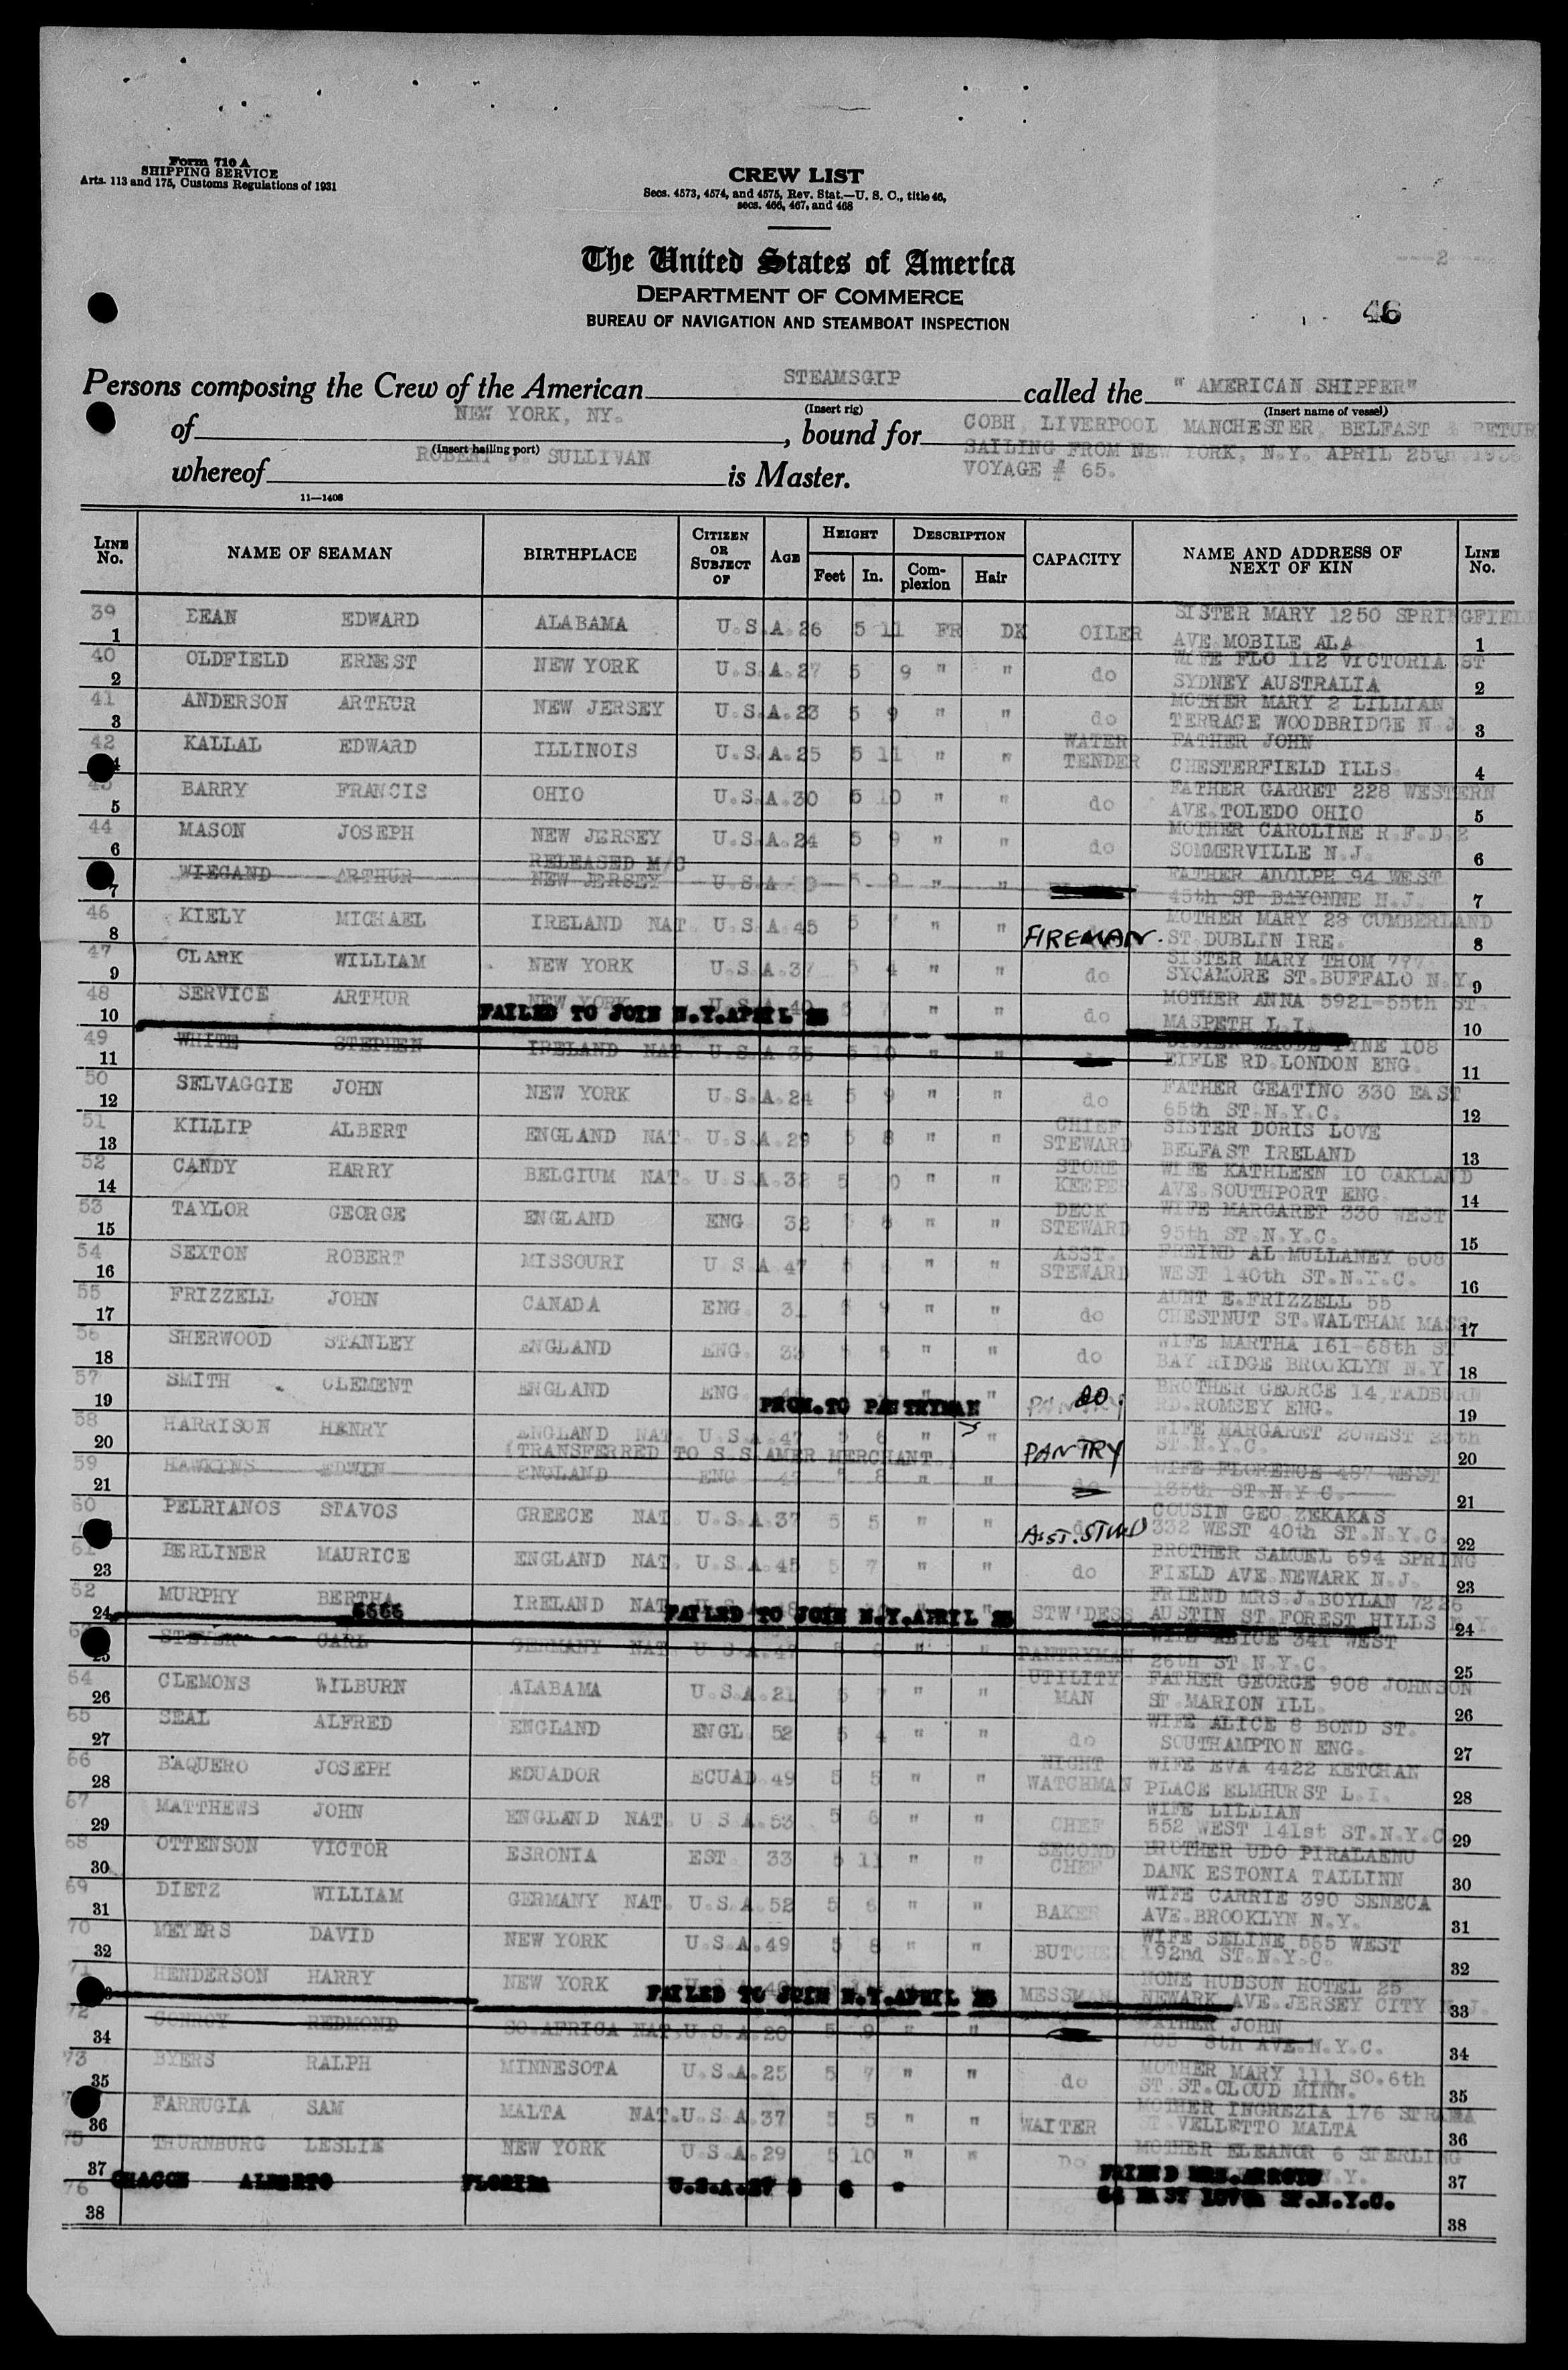 Form 710 A
SHIPPING SERVICE
Arts. 113 and 175, Customs Regulations of 1931
CREW LIST
Secs. 4573, 4574, and 4575, Rev. Stat.—U. S. C., title 46,
secs. 466, 467, and 468
The United States of America
DEPARTMENT OF COMMERCE
BUREAU OF NAVIGATION AND STEAMBOAT INSPECTION
2
46
Persons composing the Crew of the American STEAMSGIP called the " AMERICAN SHIPPER"
(Insert rig) (Insert name of vessel)
of NEW YORK, NY. , bound for COBH, LIVERPOOL MANCHESTER, BELFAST & RETUR
(Insert hailing port) SAILING FROM NEW YORK, N.Y. APRIL 25th.
whereof ROBERT J. SULLIVAN is Master. VOYAGE # 65.
11—1408
LINE No. NAME OF SEAMAN BIRTHPLACE CITIZEN OR SUBJECT OF AGE HEIGHT Feet In. DESCRIPTION Complexion Hair CAPACITY NAME AND ADDRESS OF NEXT OF KIN LINE No.
39 1 DEAN EDWARD ALABAMA U.S.A. 26 5 11 FR DK OILER SISTER MARY 1250 SPRINGFIELD AVE MOBILE ALA 1
40 2 OLDFIELD ERNEST NEW YORK U.S.A. 27 5 9 " " do WIFE FLO 112 VICTORIA ST SYDNEY AUSTRALIA 2
41 3 ANDERSON ARTHUR NEW JERSEY U.S.A. 23 5 9 " " do MOTHER MARY 2 LILLIAN TERRACE WOODBRIDGE N J. 3
42 4 KALLAL EDWARD ILLINOIS U.S.A. 25 5 11 " " WATER TENDER FATHER JOHN CHESTERFIELD ILLS. 4
43 5 BARRY FRANCIS OHIO U.S.A. 30 5 10 " " do FATHER GARRET 228 WESTERN AVE.TOLEDO OHIO 5
44 6 MASON JOSEPH NEW JERSEY U.S.A. 24 5 9 " " do MOTHER CAROLINE R.F.D.2 SOMMERVILLE N.J. 6
RELEASED M/C
7 WIEGAND ARTHUR NEW JERSEY U.S.A 5 9 " " FATHER ADOLPH 94 WEST 45th ST BAYONNE N.J. 7
46 8 KIELY MICHAEL IRELAND NAT. U.S.A. 45 5 7 " " FIREMAN. MOTHER MARY 23 CUMBERLAND ST DUBLIN IRE. 8
47 9 CLARK WILLIAM NEW YORK U.S.A. 37 5 4 " " do SISTER MARY THOM 777 SYCAMORE ST.BUFFALO N.Y. 9
48 10 SERVICE ARTHUR NEW YORK U.S.A. 40 5 7 " " do MOTHER ANNA 5921-55th ST. MASPETH L.I. 10
FAILED TO JOIN N.Y.APRIL 25
49 11 WHITE STEPHEN IRELAND NAT U.S.A 35 5 10 " " SISTER MAUDE PYNE 108 EIFLE RD.LONDON ENG. 11
50 12 SELVAGGIE JOHN NEW YORK U.S.A. 24 5 9 " " do FATHER GEATINO 330 EAST 65th ST.N.Y.C. 12
51 13 KILLIP ALBERT ENGLAND NAT. U.S.A. 29 5 8 " " CHIEF STEWARD SISTER DORIS LOVE BELFAST IRELAND 13
52 14 CANDY HARRY BELGIUM NAT. U.S.A. 38 5 " " STORE KEEPER WIFE KATHLEEN 10 OAKLAND AVE.SOUTHPORT ENG. 14
53 15 TAYLOR GEORGE ENGLAND ENG 32 8 " " DECK STEWARD WIFE MARGARET 330 WEST 95th ST.N.Y.C. 15
54 16 SEXTON ROBERT MISSOURI U S A 47 " " ASST. STEWARD FREIND AL.MULLANEY 608 WEST 140th ST.N.Y.C. 16
55 17 FRIZZELL JOHN CANADA ENG. 9 " " do AUNT E.FRIZZELL 55 CHESTNUT ST.WALTHAM MASS. 17
56 18 SHERWOOD STANLEY ENGLAND ENG. 33 5 5 " " do WIFE MARTHA 161-68th ST BAY RIDGE BROOKLYN N.Y. 18
57 19 SMITH CLEMENT ENGLAND ENG " " do. BROTHER GEORGE 14,TADBURN RD.ROMSEY ENG. 19
PROM.TO PANTRYMAN
58 20 HARRISON HENRY ENGLAND NAT. U.S.A. 47 5 6 " " PANTRY WIFE MARGARET 20WEST ST.N.Y.C. 20
(TRANSFERRED TO S.S.AMER MERCHANT.)
59 21 HAWKINS EDWIN ENGLAND ENG 8 " " do WIFE FLORENCE 487 WEST 135th ST.N.Y C. 21
60 PELRIANOS STAVOS GREECE NAT. U.S.A. 37 5 5 " " Asst. STWD COUSIN GEO ZEKAKAS 332 WEST 40th ST.N.Y.C. 22
61 23 BERLINER MAURICE ENGLAND NAT. U.S.A. 45 5 7 " " do BROTHER SAMUEL 694 SPRING FIELD AVE NEWARK N.J. 23
62 24 MURPHY BERTHA IRELAND NAT STW'DESS FRIEND MRS.J.BOYLAN 7226 AUSTIN ST.FOREST HILLS N.Y. 24
FAILED TO JOIN N.Y.APRIL 25
25 STEYER CARL GERMANY NAT U S.A. 47 5 6 " " PANTRYMAN WIFE ALICE 341 WEST 26th ST.N.Y.C. 25
64 26 CLEMONS WILBURN ALABAMA U.S.A. 21 5 7 " " UTILITY MAN FATHER GEORGE 908 JOHNSON ST.MARION ILL. 26
65 27 SEAL ALFRED ENGLAND ENGL 52 5 4 " " do WIFE ALICE 8 BOND ST. SOUTHAMPTON ENG. 27
66 28 BAQUERO JOSEPH EDUADOR ECUAD. 49 5 5 " " NIGHT WATCHMAN WIFE EVA 4422 KETCHAN PLACE ELMHURST L.I. 28
67 29 MATTHEWS JOHN ENGLAND NAT. U S A. 53 5 6 " " CHEF WIFE LILLIAN 552 WEST 141st ST.N.Y.C 29
68 30 OTTENSON VICTOR ESRONIA EST 33 5 11 " " SECOND CHEF BROTHER UDO PIRALAENU DANK ESTONIA TALLINN 30
69 31 DIETZ WILLIAM GERMANY NAT. U.S.A. 52 5 6 " " BAKER WIFE CARRIE 390 SENECA AVE.BROOKLYN N.Y. 31
70 32 MEYERS DAVID NEW YORK U.S.A. 49 5 8 " " BUTCHER WIFE SELINE 565 WEST 192nd ST.N.Y.C. 32
71 HENDERSON HARRY NEW YORK MESSMAN NONE HUDSON HOTEL 25 NEWARK AVE.JERSEY CITY N.J. 33
FAILED TO JOIN N.Y.APRIL 25
72 34 CONROY REDMOND SO.AFRICA NAT.U.S.A. 20 5 9 " " FATHER JOHN 705 8th AVE.N.Y.C. 34
73 35 BYERS RALPH MINNESOTA U.S.A. 25 5 7 " " do MOTHER MARY 111 SO.6th ST ST.CLOUD MINN. 35
36 FARRUGIA SAM MALTA NAT.U.S.A. 37 5 5 " " WAITER MOTHER INGREZIA 176 STRADA ST VELLETTO MALTA 36
75 37 THURNBURG LESLIE NEW YORK U.S.A. 29 5 10 " " Do MOTHER ELEANOR 6 STERLING 37
76 38 CHACON ALBERTO FLORIDA U.S.A. 27 5 6 " FRIEND MRS.ARROYO 64 EAST 107th ST.N.Y.C. 38